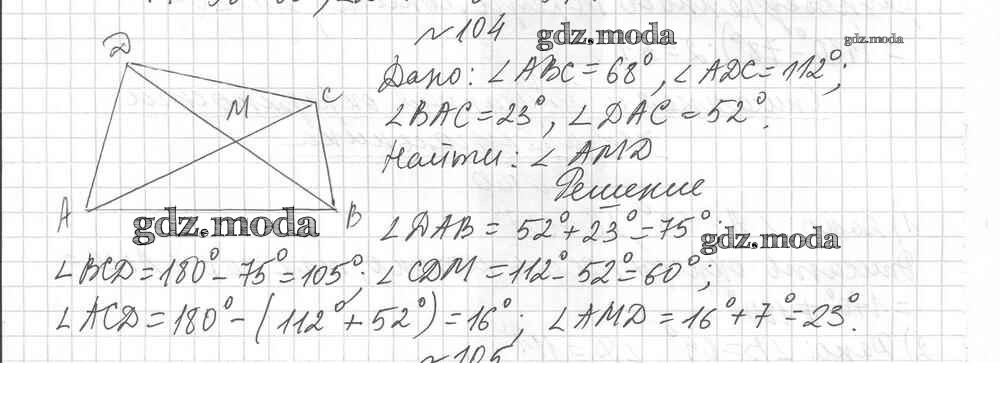 №104
gdz.moda
gdz.moda
Дано: ∠ABC = 68°, ∠ADC = 112°;
∠BAC = 23°, ∠DAC = 52°.
Найти: ∠AMD
Решение
D
C
M
A
B
gdz.moda
∠DAB = 52° + 23° = 75°;
gdz.moda
∠BCD = 180° - 75° = 105°; ∠CDM = 112° - 52° = 60°;
∠ACD = 180° - (112° + 52°) = 16°; ∠AMD = 16° + 7° = 23°.
№105